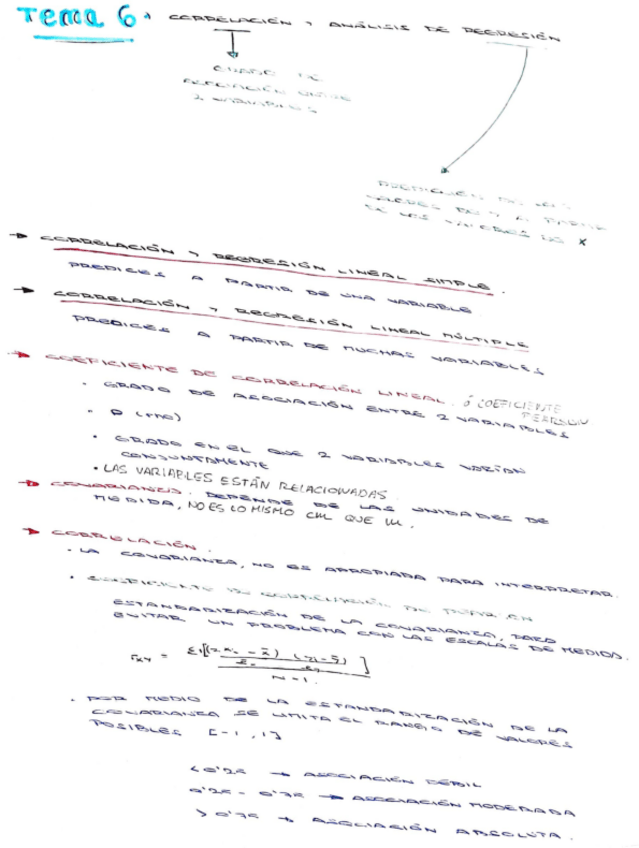 Tema 6. CORRELACIÓN Y ANÁLISIS DE REGRESIÓN
GRADO DE
ASOCIACIÓN ENTRE
2 VARIABLES
PREDICCIÓN DE LOS
VALORES DE Y A PARTIR
DE LOS VALORES DE X
→ CORRELACIÓN Y REGRESIÓN LINEAL SIMPLE.
PREDICES A PARTIR DE UNA VARIABLE
→ CORRELACIÓN Y REGRESIÓN LINEAL MÚLTIPLE
PREDICES A PARTIR DE MUCHAS VARIABLES
→ COEFICIENTE DE CORRELACIÓN LINEAL. ó COEFICIENTE PEARSON
• GRADO DE ASOCIACIÓN ENTRE 2 VARIABLES
• (rho)
• GRADO EN EL QUE 2 VARIABLES VARÍAN
CONJUNTAMENTE
• LAS VARIABLES ESTÁN RELACIONADAS
→ COVARIANZA. DEPENDE DE LAS UNIDADES DE
MEDIDA, NO ES LO MISMO CM QUE M.
→ CORRELACIÓN.
• LA COVARIANZA, NO ES APROPIADA PARA INTERPRETAR.
• COEFICIENTE DE CORRELACIÓN DE PEARSON
ESTANDARIZACIÓN DE LA COVARIANZA, PARA
EVITAR UN PROBLEMA CON LAS ESCALAS DE MEDIDA.
rxy =
N-1
• POR MEDIO DE LA ESTANDARIZACIÓN DE LA
COVARIANZA SE LIMITA EL RANGO DE VALORES
POSIBLES [-1, 1]
< 0'25 → ASOCIACIÓN DÉBIL
0'25 - 0'75 → ASOCIACIÓN MODERADA
> 0'75 → ASOCIACIÓN ABSOLUTA.